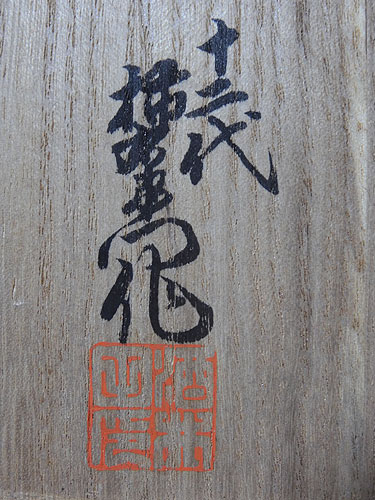 十二代
柿右衛門
作